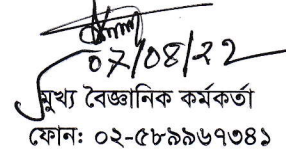 07/08/22
মুখ্য বৈজ্ঞানিক কর্মকর্তা
ফোন: ০২-৫৮৯৯৬৭৩৪১